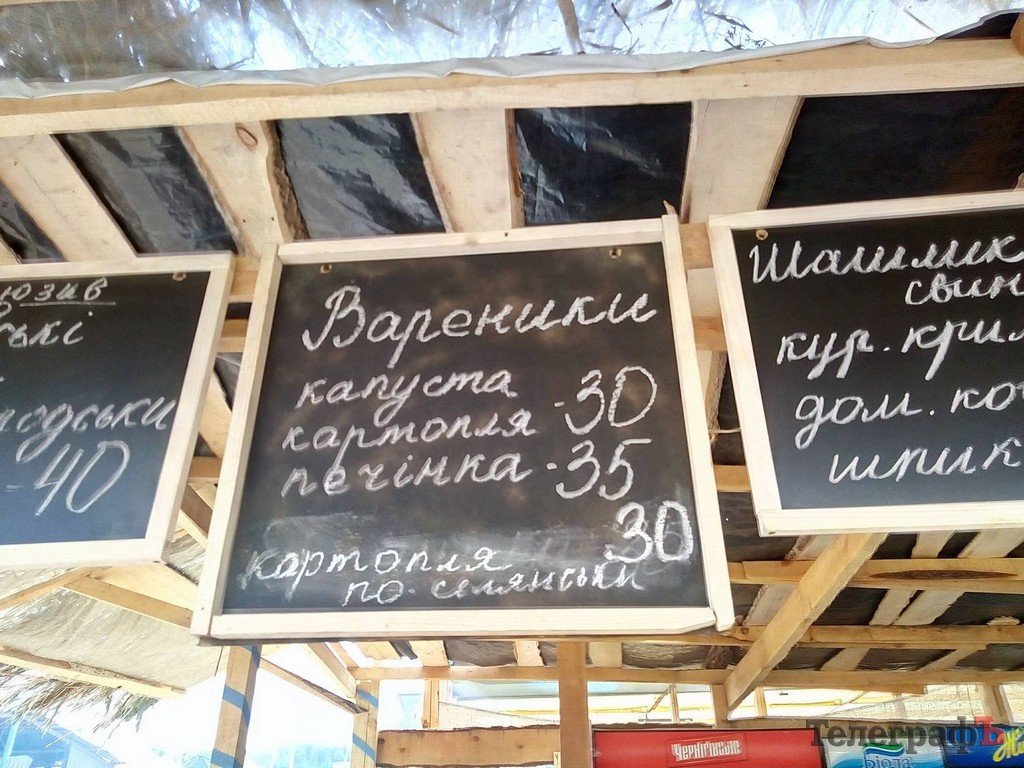 юзив
ські
родськи
-40
Вареники
капуста
картопля -30
печінка -35
картопля 30
по-селянськи
Шашлик
свин
кур. крил
дом. ко
шпик
Чернігівське
Біола
ТелеграфЪ